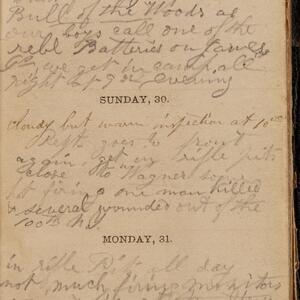 Bull of the Woods as
our boys call one of the
rebl Batteries on James
we got in camp all
right at 9 oc evening
SUNDAY, 30.
Cloudy but warm inspection at 10 oc
Regt goes to front
again get in rifle pits
close to Wagner some
firing one man killed
& several wounded out of the
100th NY
MONDAY, 31.
in rifle Pits all day
not much firing monitors